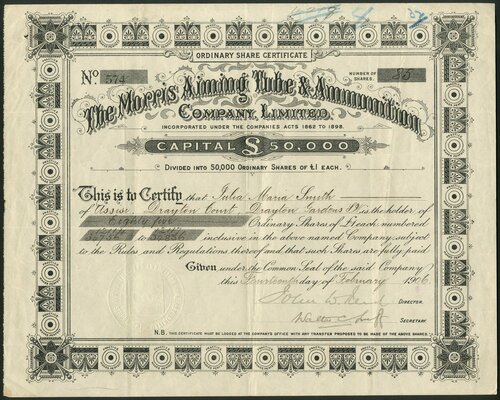 ORDINARY SHARE CERTIFICATE
No 574
NUMBER OF SHARES. 85
The Morris Aiming Tube & Ammunition
COMPANY, LIMITED.
INCORPORATED UNDER THE COMPANIES ACTS 1862 TO 1898.
CAPITAL £50,000
DIVIDED INTO 50,000 ORDINARY SHARES OF £1 EACH.
This is to Certify that Julia Maria Smyth
of Drayton Court, Drayton Gardens is the holder of
Eighty five Ordinary Shares of £1 each numbered
to inclusive in the above named Company, subject
to the Rules and Regulations thereof and that such Shares are fully paid
Given under the Common Seal of the said Company
this Fourteenth day of February 1906
DIRECTOR.
SECRETARY.
N.B. THIS CERTIFICATE MUST BE LODGED AT THE COMPANY'S OFFICE WITH ANY TRANSFER PROPOSED TO BE MADE OF THE ABOVE SHARES.